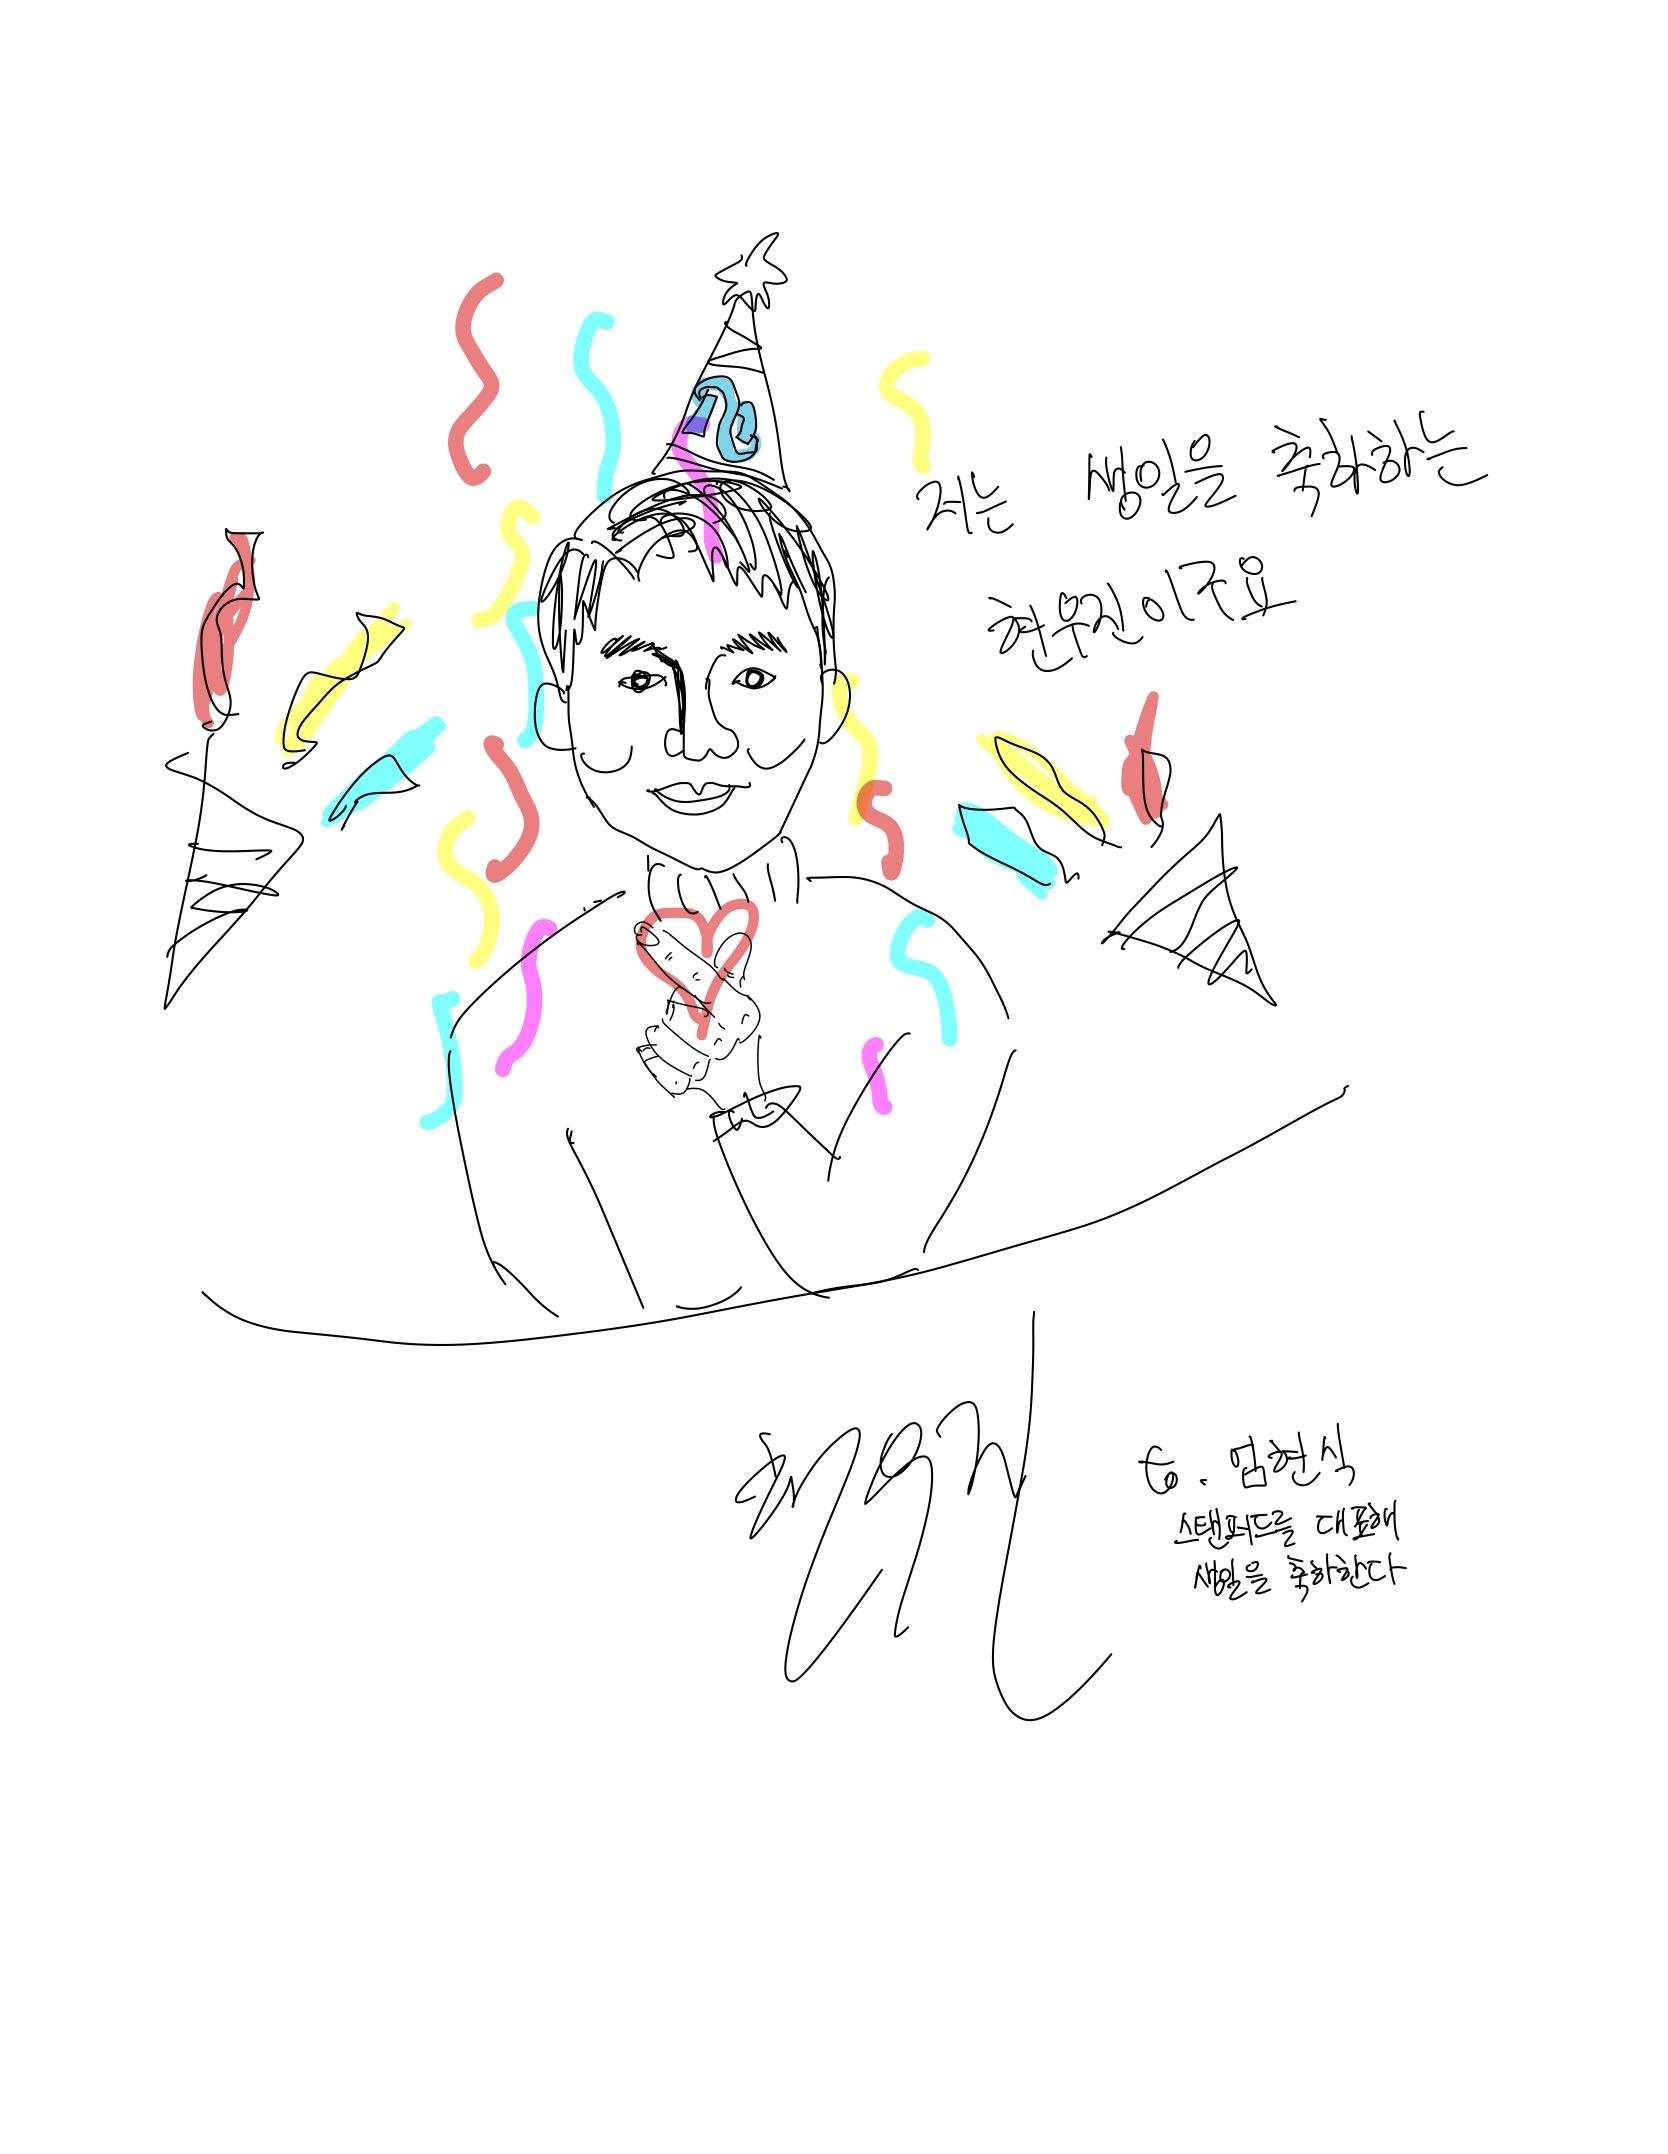 저는 생일을 축하하는
현우진이구요
현우진
to. 엄현식
스탠퍼드를 대표해
생일을 축하한다